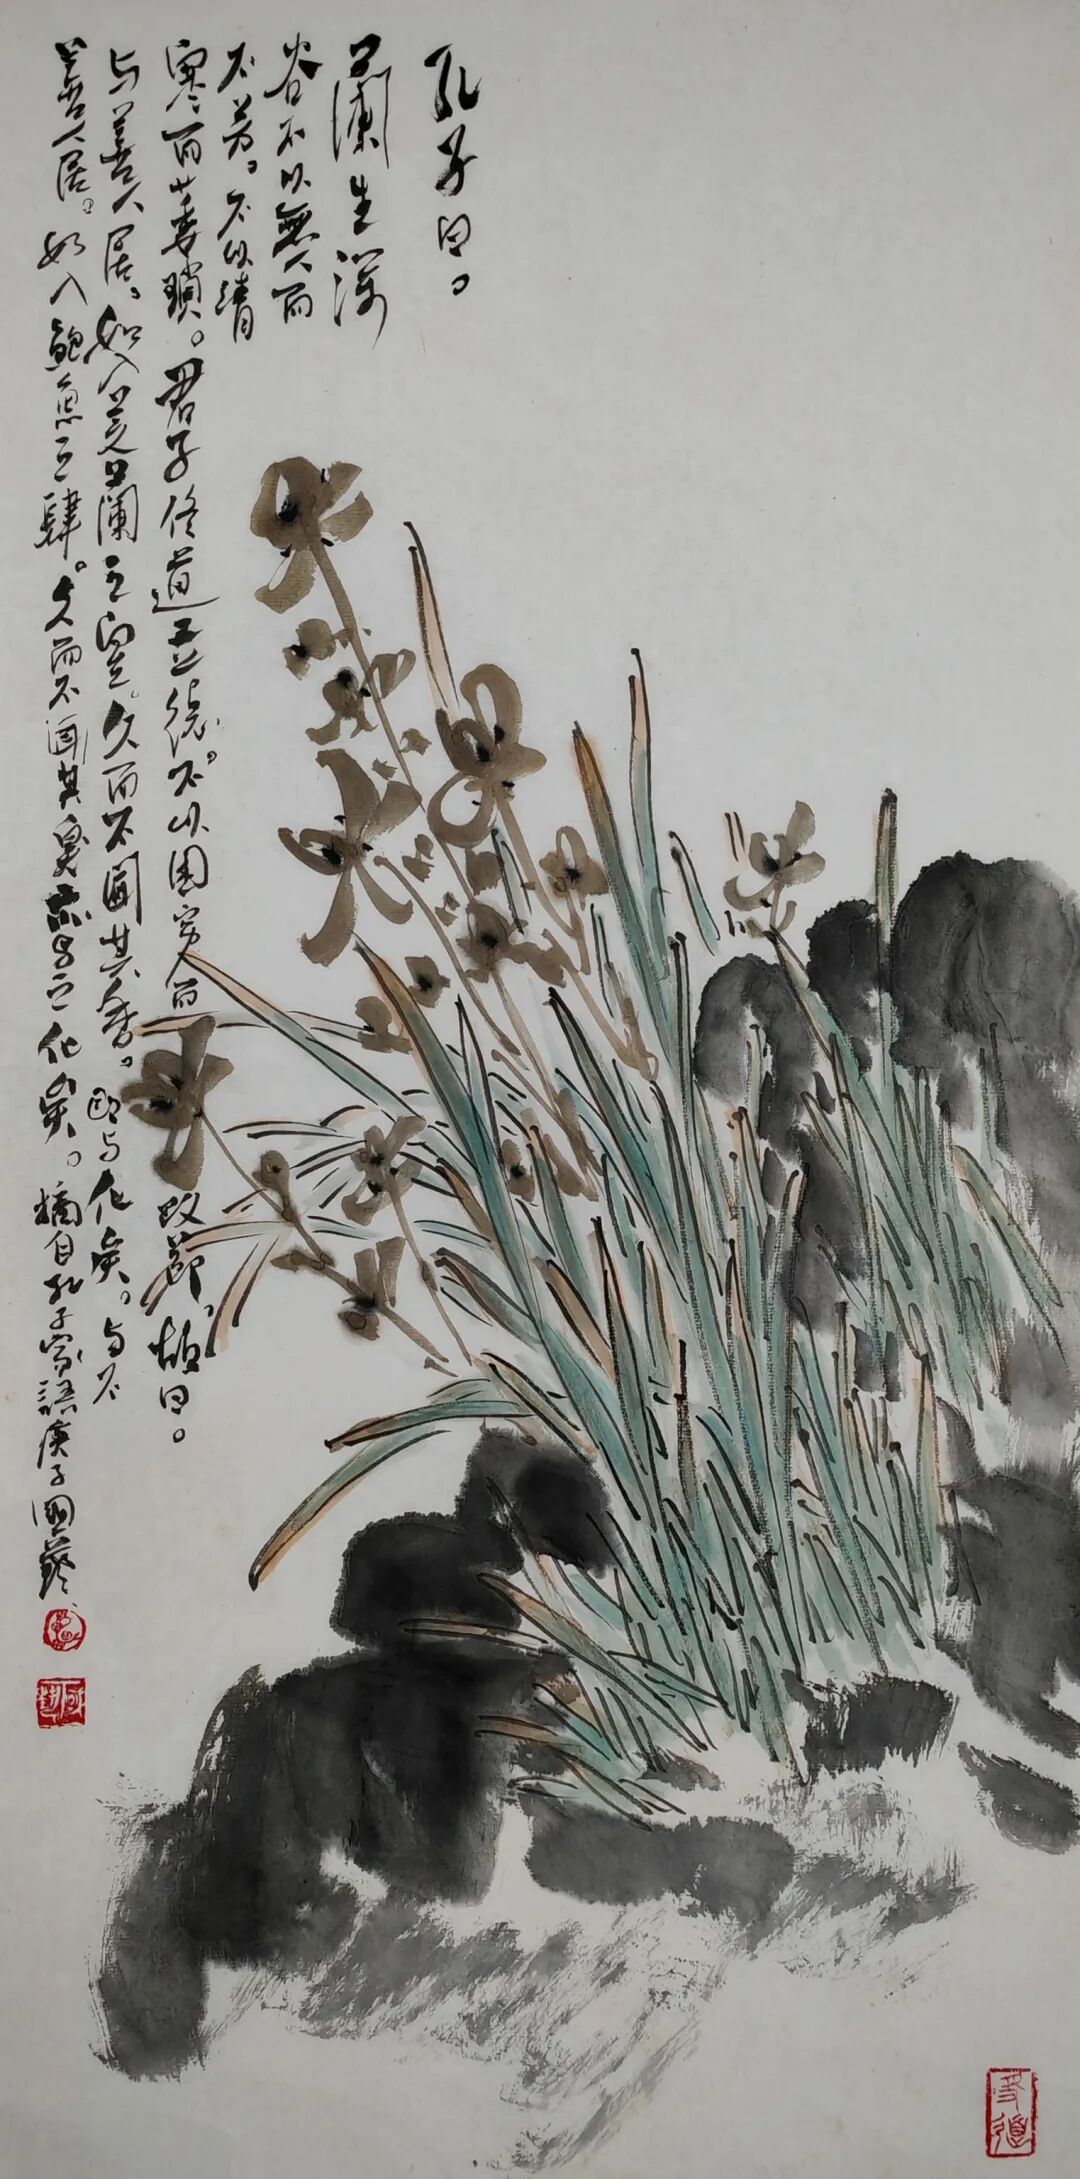 孔子曰。
蘭生深
谷不以無人而
不芳。不以清
寒而萎瑣。君子修道立德。不以困穷而改節。曰。
与善人居。如入芝蘭之室。久而不聞其香。即与化矣。与不
善人居。如入鲍魚之肆。久而不聞其臭亦与之化矣。摘自孔子家語庚子國藝